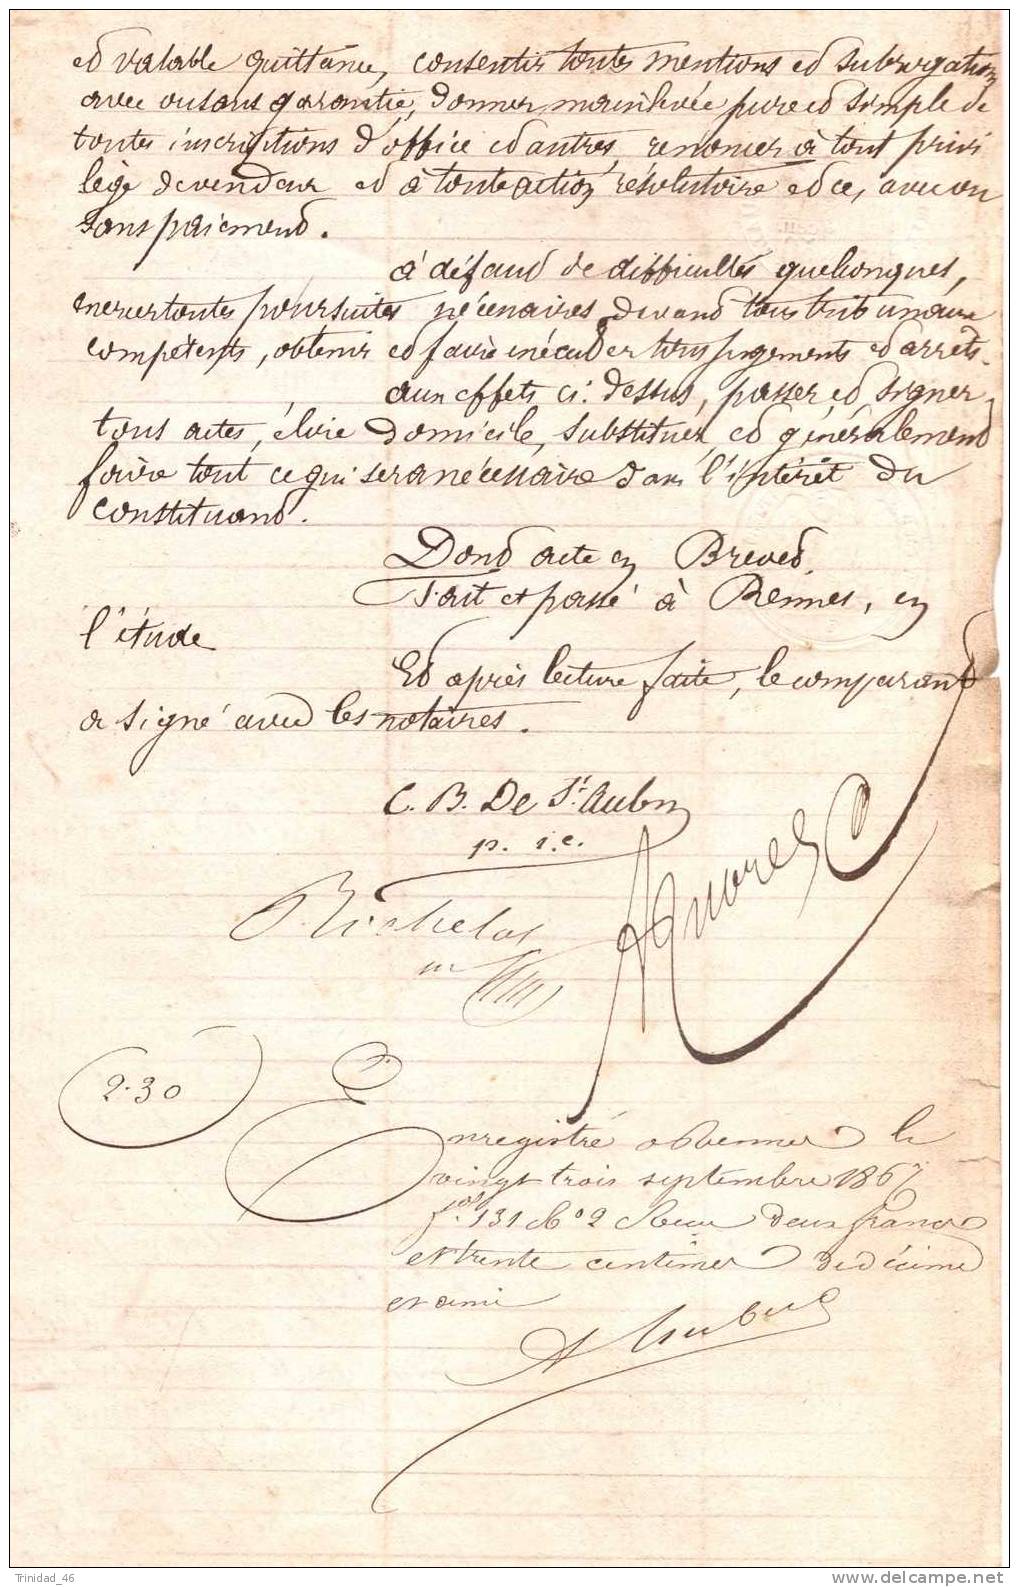 et valable quittance, consentir toutes mentions et subrogations
avec ou sans garantie, donner mainlevée pure et simple de
toutes inscriptions d'office et autres, renoncer à tout privi
lège de vendeur et à toute action résolutoire et ce, avec ou
sans paiement.
à défaut de difficultés quelconques,
exercer toutes poursuites nécessaires devant tous tribunaux
compétents, obtenir et faire exécuter tous jugements et arrêts.
aux effets ci-dessus, passer et signer
tous actes, élire domicile, substituer et généralement
faire tout ce qui sera nécessaire dans l'intérêt du
constituant.
Dont acte en Brevet.
Fait et passé à Rennes, en
l'étude
Et après lecture faite, le comparant
a signé avec les notaires.
C. B. De St. Aubin
p. i. c.
Richelot
2.30
Enregistré a Rennes le
vingt trois septembre 1867
fol. 131 Co 2 Reçu deux francs
et trente centimes décime
et demi
Trinidad_46
www.delcampe.net